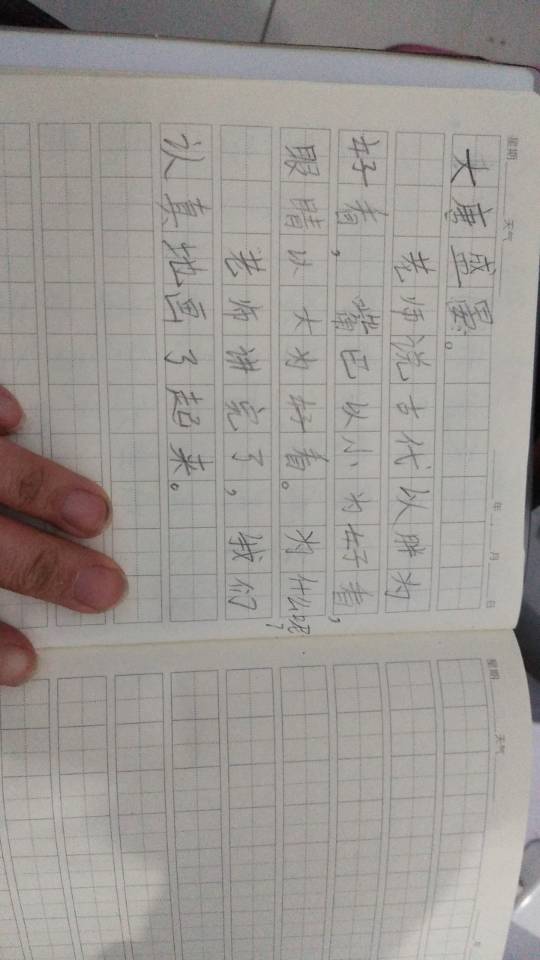 星期 天气 年 月 日
大唐盛景。
老师说古代以胖为
好看，嘴巴以小为好看，
眼睛以大为好看。为什么呢？
老师讲完了，我们
认真地画了起来。
星期 天气